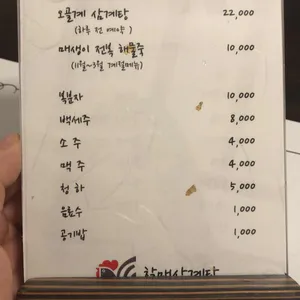 오골계 삼계탕 22,000
(하루 전 예약)
매생이 전복 해물죽 10,000
(11월~3월 계절메뉴)
복분자 10,000
백세주 8,000
소 주 4,000
맥 주 4,000
청 하 5,000
음료수 1,000
공기밥 1,000
참매삼계탕